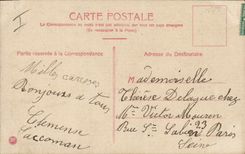 CARTE POSTALE
La Correspondance au recto n'est pas acceptée par tous les pays étrangers
(Se renseigner à la Poste)
Partie réservée à la Correspondance
Adresse du Destinataire
Mille caresses
Bonjours à tous
Clémence
Laccoman
Mademoiselle
Thérèse Delage chez
Mr Victor Mouron
Rue St Sabin 23
Paris
Seine